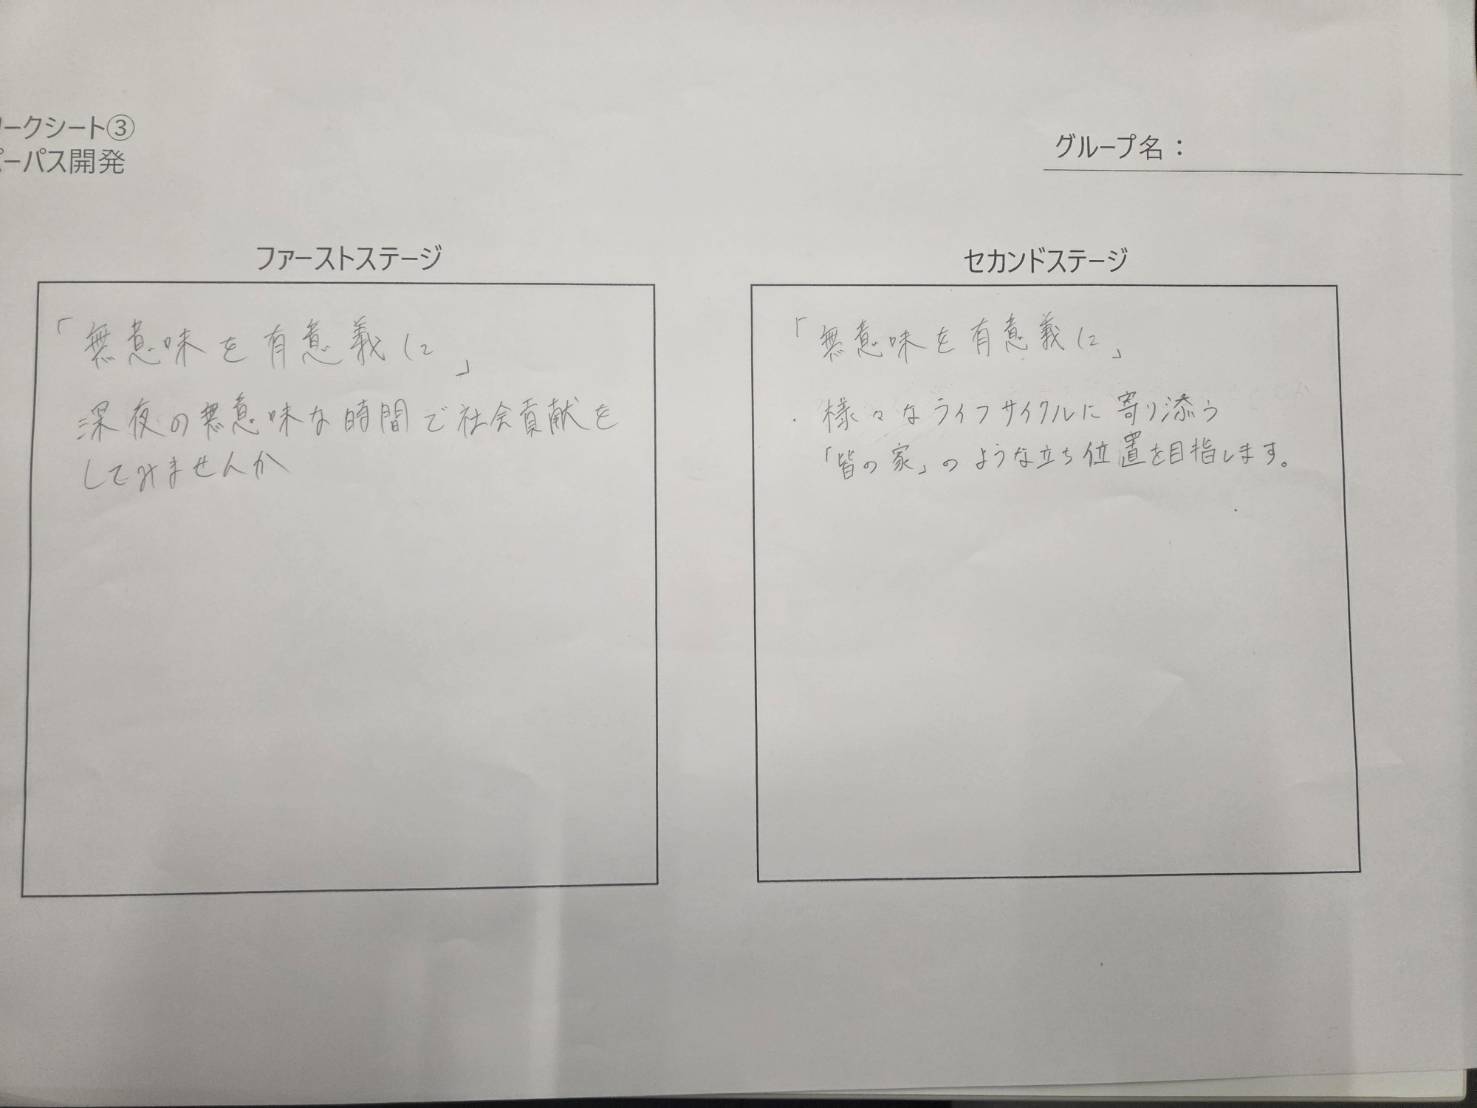 ークシート③
パーパス開発
グループ名：
ファーストステージ
「無意味を有意義に」
深夜の無意味な時間で社会貢献を
してみませんか
セカンドステージ
「無意味を有意義に」
・様々なライフサイクルに寄り添う
「皆の家」のような立ち位置を目指します。